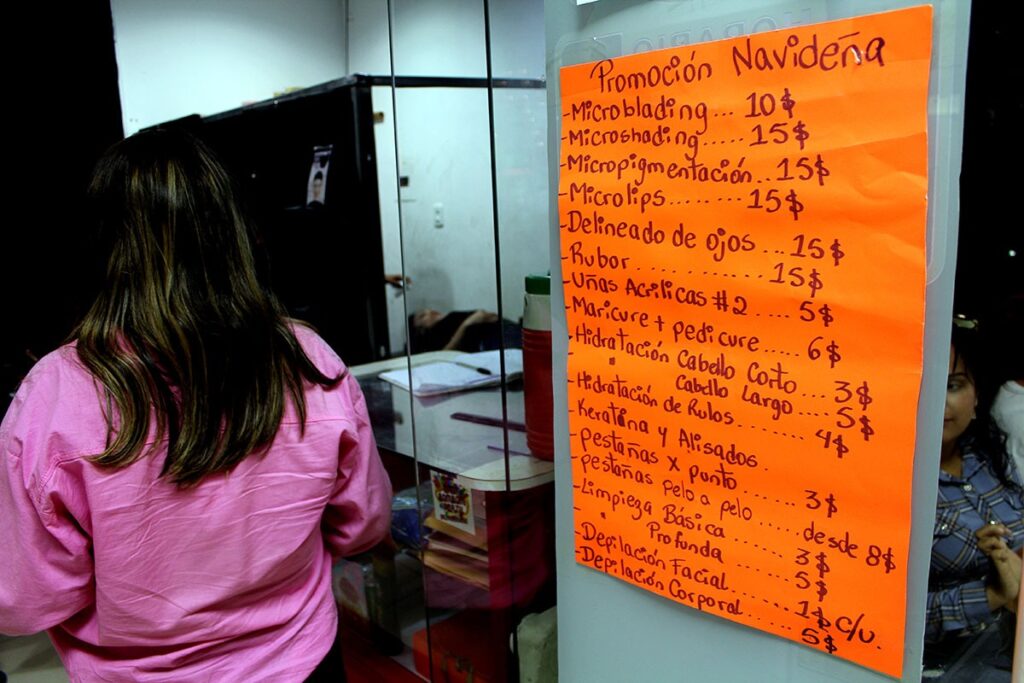 HORARIO
Promoción Navideña
-Microblading... 10$
-Microshading..... 15$
-Micropigmentación.. 15$
-Microlips....... 15$
-Delineado de ojos ... 15$
-Rubor .......... 15$
-Uñas Acrilicas #2 .... 5$
-Maricure + pedicure ..... 6$
-Hidratación Cabello Corto ... 3$
- " Cabello Largo .... 5$
-Hidratación de Rulos ........ 4$
-Keratina y Alisados.
-pestañas x punto ....... 3$
-pestañas pelo a pelo ..... desde 8$
-Limpieza Básica ........ 3$
- Profunda ....... 5$
-Depilación Facial ....... 1$ c/u.
-Depilación Corporal ....... 5$